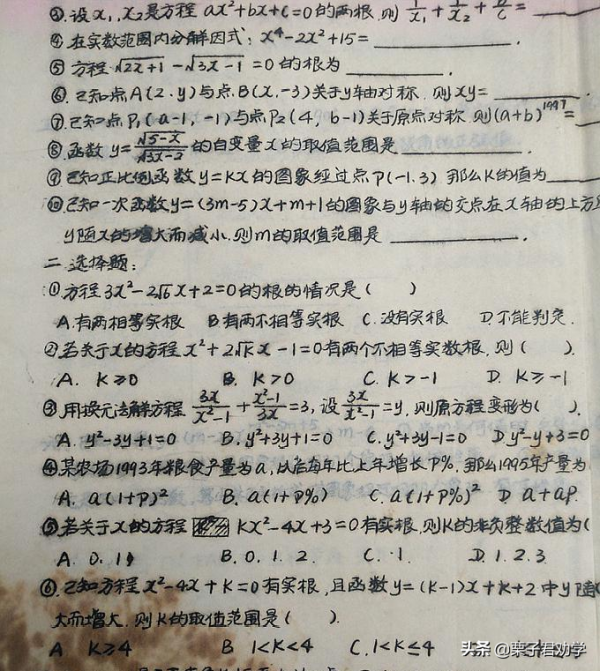 ③设x₁,x₂是方程 ax²+bx+c=0的两根,则 1/x₁ + 1/x₂ + b/c = ____
④在实数范围内分解因式: x⁴-2x²+15= ____.
⑤方程√2x+1 - √3x-1 =0的根为 ____.
⑥.已知点A(2.y)与点B(x,-3)关于y轴对称.则xy= ____
⑦.已知点P₁(a-1,-1)与点P₂(4,b-1)关于原点对称.则(a+b)¹⁹⁹⁷= ____
⑧.函数 y= √5-x / √3x-2 的自变量x的取值范围是 ____.
⑨已知正比例函数y=kx的图象经过点P(-1.3) 那么k的值为 ____
⑩已知一次函数y=(3m-5)x+m+1的图象与y轴的交点在x轴的上方
y随x的增大而减小.则m的取值范围是 ____.
二.选择题:
①方程3x²-2√6x+2=0的根的情况是( )
A.有两相等实根 B.有两不相等实根 C.没有实根 D.不能判定.
②若关于x的方程x²+2√kx-1=0有两个不相等实数根.则( ).
A. k≥0 B. k>0 C. k>-1 D. k≥-1
③用换元法解方程 3x/x²-1 + x²-1/3x =3,设 3x/x²-1 =y,则原方程变形为( ).
A. y²-3y+1=0 B. y²+3y+1=0 C. y²+3y-1=0 D. y²-y+3=0
④某农场1993年粮食产量为a,以后每年比上年增长P%.那么1995年产量为
A. a(1+P)² B. a(1+P%) C. a(1+P%)² D a+ap.
⑤若关于x的方程 kx²-4x+3=0有实根.则k的非负整数值为(
A. 0. 1 B. 0. 1. 2. C. 1 D. 1. 2. 3
⑥.已知方程x²-4x+k=0有实根,且函数y=(k-1)x+k+2中y随
大而增大.则k的取值范围是( ).
A k≥4 B 1<k<4 C. 1<k≤4
头条 @栗子君劝学